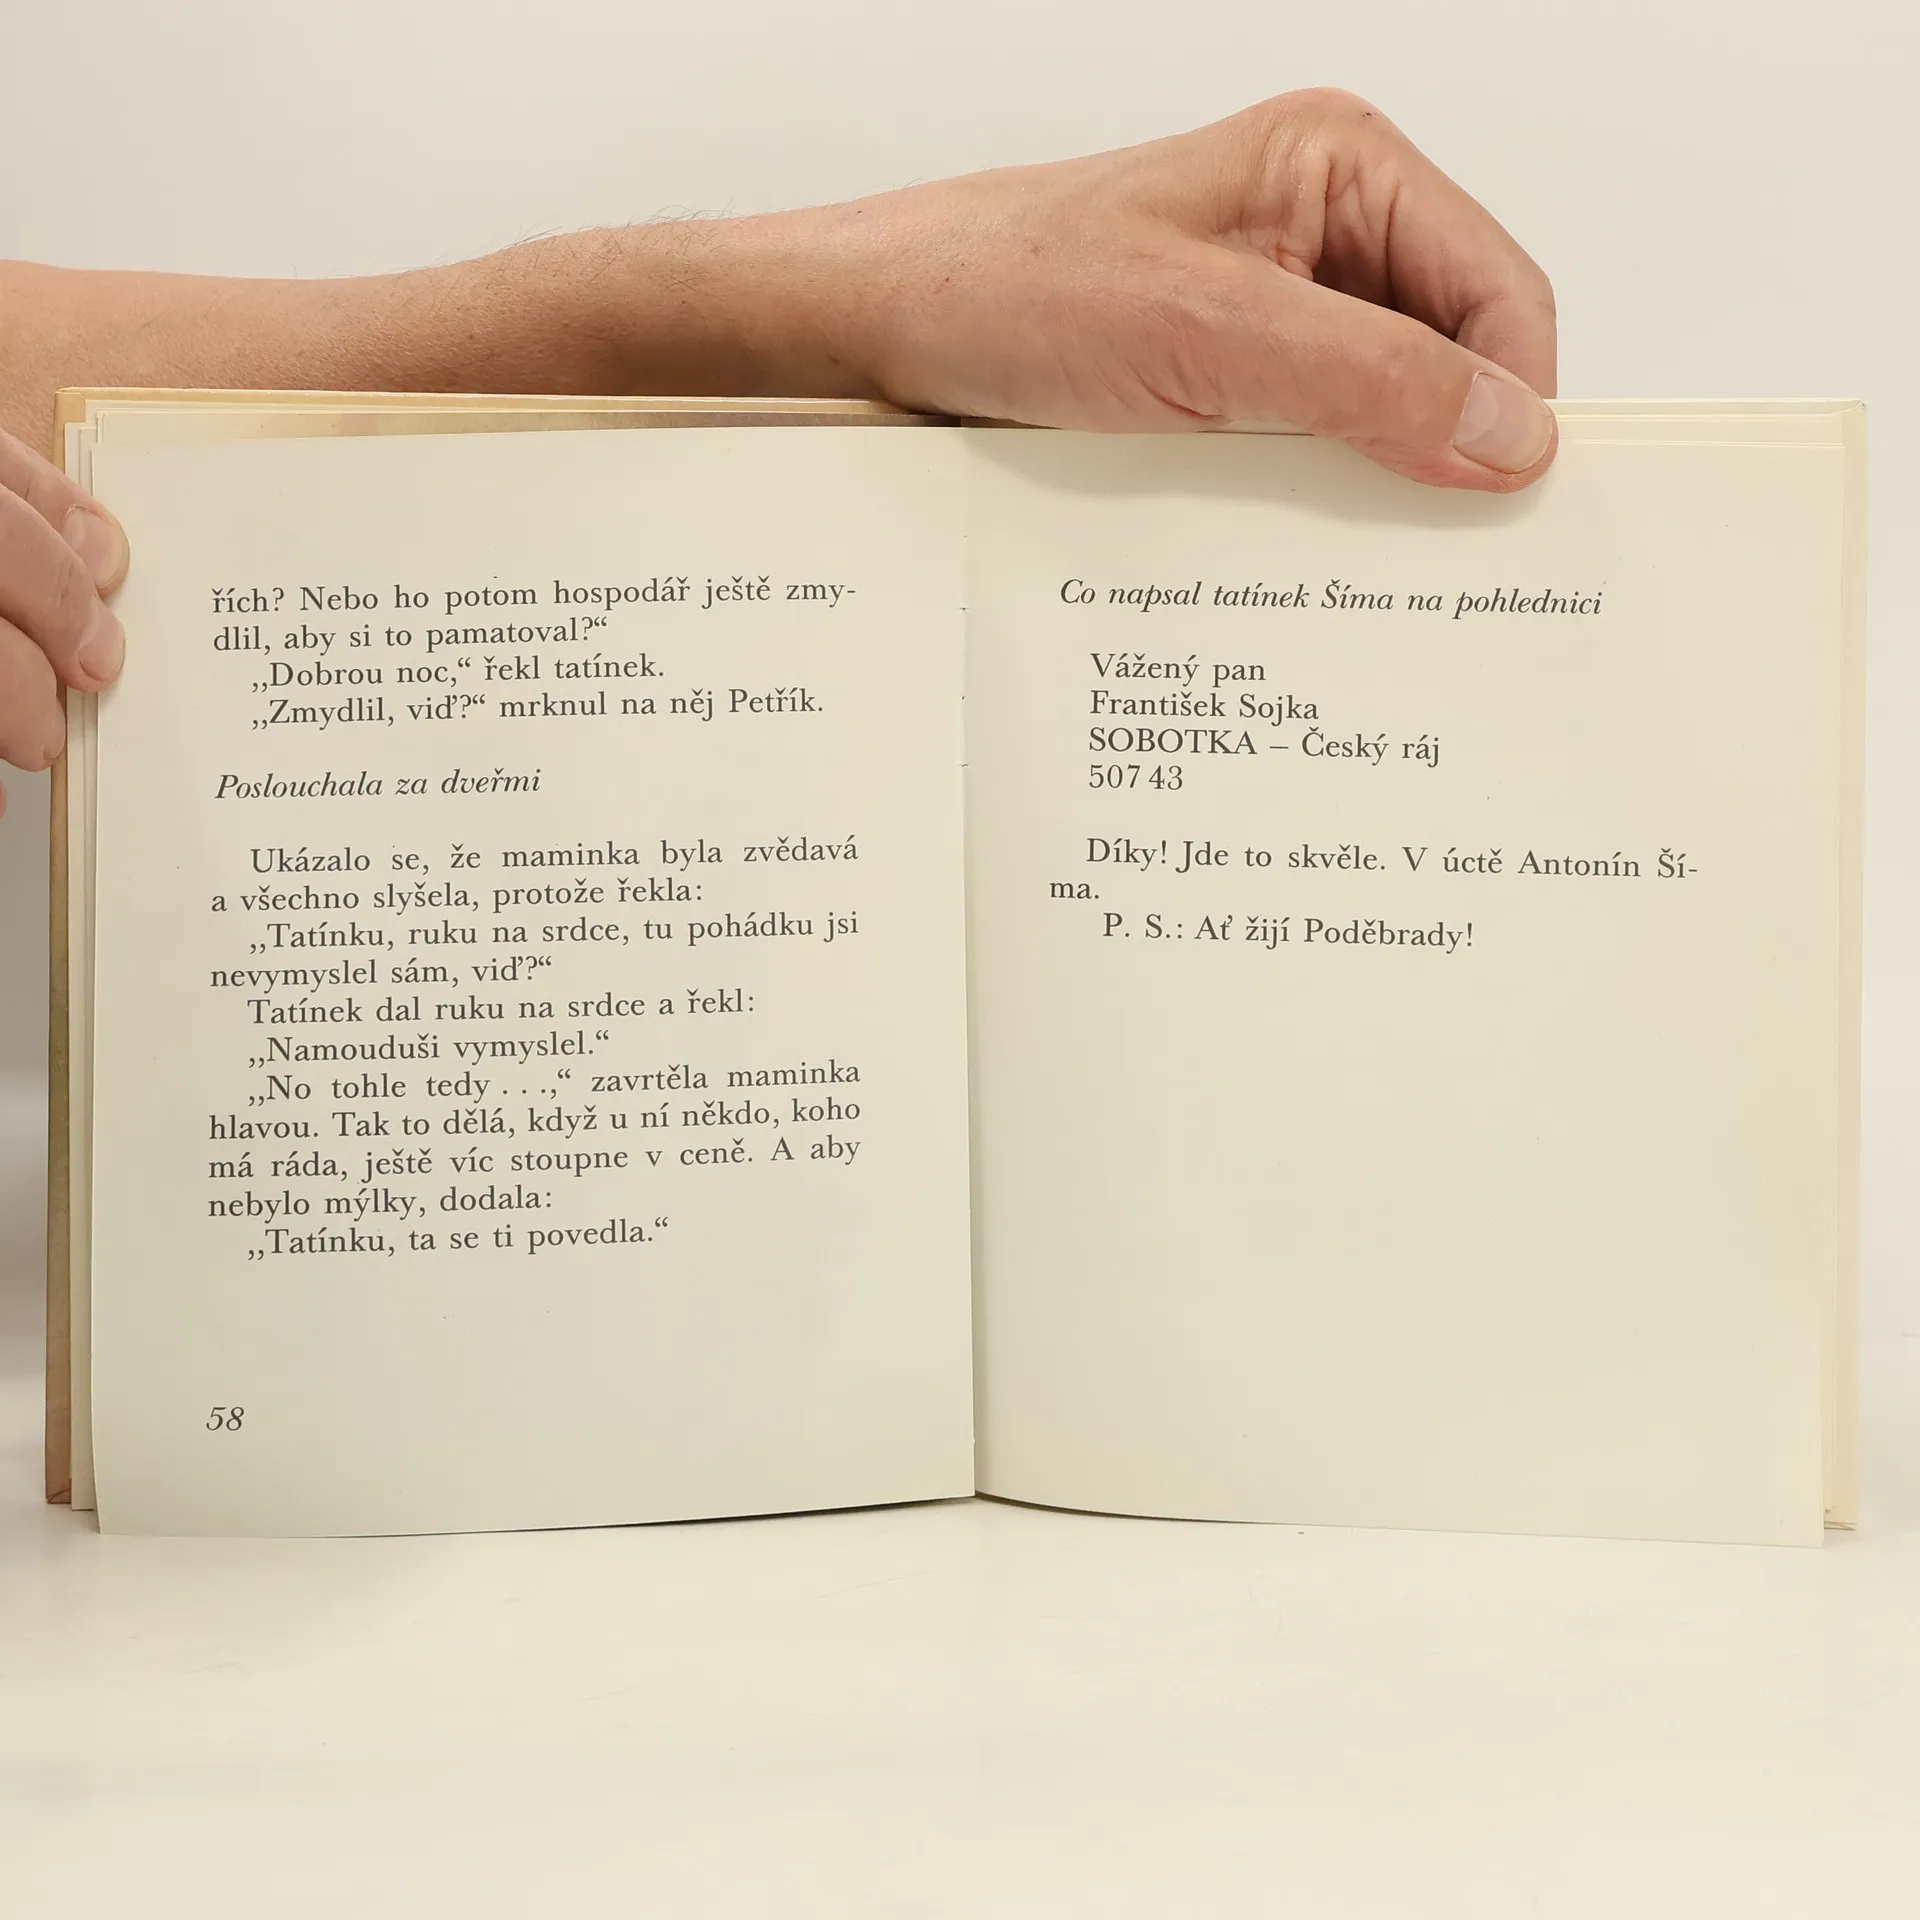 řích? Nebo ho potom hospodář ještě zmy-
dlil, aby si to pamatoval?“
„Dobrou noc,“ řekl tatínek.
„Zmydlil, viď?“ mrknul na něj Petřík.
Poslouchala za dveřmi
Ukázalo se, že maminka byla zvědavá
a všechno slyšela, protože řekla:
„Tatínku, ruku na srdce, tu pohádku jsi
nevymyslel sám, viď?“
Tatínek dal ruku na srdce a řekl:
„Namouduši vymyslel.“
„No tohle tedy . . .,“ zavrtěla maminka
hlavou. Tak to dělá, když u ní někdo, koho
má ráda, ještě víc stoupne v ceně. A aby
nebylo mýlky, dodala:
„Tatínku, ta se ti povedla.“
58
Co napsal tatínek Šíma na pohlednici
Vážený pan
František Sojka
SOBOTKA – Český ráj
507 43
Díky! Jde to skvěle. V úctě Antonín Ší-
ma.
P. S.: Ať žijí Poděbrady!